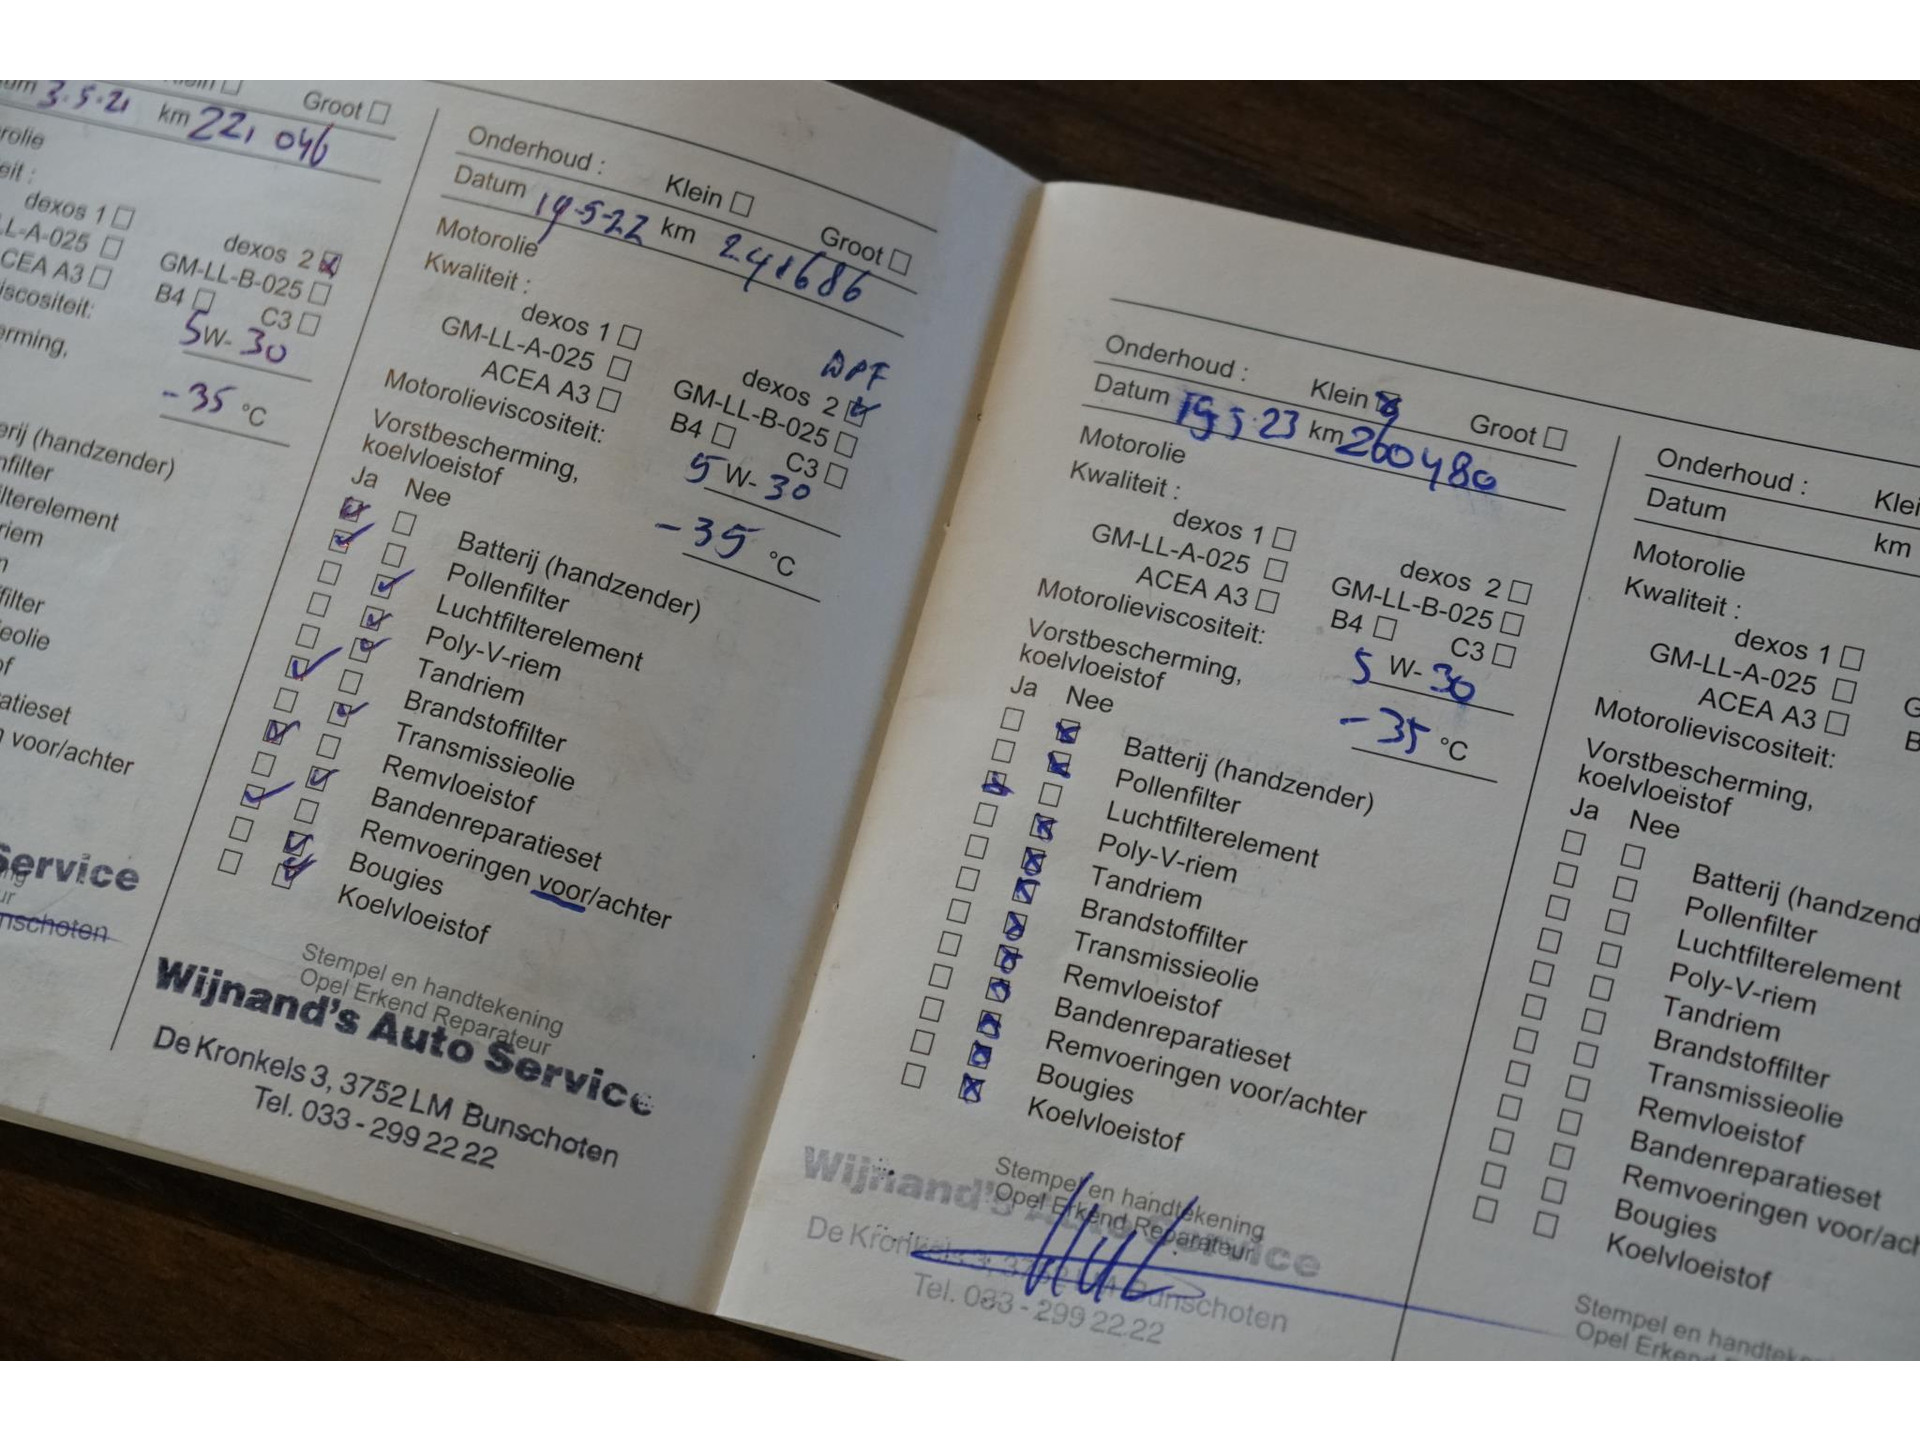 Klein Groot
3.5.21 km 221 046
dexos 1
dexos 2
LL-A-025
GM-LL-B-025
CEA A3
B4 C3
5 W- 30
-35 °C
(handzender)
voor/achter
Service
Onderhoud : Klein Groot
Datum 19-5-22 km 241686
Motorolie
Kwaliteit :
DPF
dexos 1 dexos 2
GM-LL-A-025 GM-LL-B-025
ACEA A3 B4 C3
Motorolieviscositeit: 5 W- 30
Vorstbescherming,
koelvloeistof -35 °C
Ja Nee
Batterij (handzender)
Pollenfilter
Luchtfilterelement
Poly-V-riem
Tandriem
Brandstoffilter
Transmissieolie
Remvloeistof
Bandenreparatieset
Remvoeringen voor/achter
Bougies
Koelvloeistof
Stempel en handtekening
Opel Erkend Reparateur
Wijnand's Auto Service
De Kronkels 3, 3752 LM Bunschoten
Tel. 033 - 299 22 22
Onderhoud : Klein Groot
Datum 19 5 23 km 260480
Motorolie
Kwaliteit :
dexos 1 dexos 2
GM-LL-A-025 GM-LL-B-025
ACEA A3 B4 C3
Motorolieviscositeit: 5 W- 30
Vorstbescherming,
koelvloeistof -35 °C
Ja Nee
Batterij (handzender)
Pollenfilter
Luchtfilterelement
Poly-V-riem
Tandriem
Brandstoffilter
Transmissieolie
Remvloeistof
Bandenreparatieset
Remvoeringen voor/achter
Bougies
Koelvloeistof
Stempel en handtekening
Opel Erkend Reparateur
Wijnand's Auto Service
De Kronkels 3, 3752 LM Bunschoten
Tel. 033 - 299 22 22
Onderhoud : Klei
Datum km
Motorolie
Kwaliteit :
dexos 1
GM-LL-A-025
ACEA A3
Motorolieviscositeit:
Vorstbescherming,
koelvloeistof
Ja Nee
Batterij (handzend
Pollenfilter
Luchtfilterelement
Poly-V-riem
Tandriem
Brandstoffilter
Transmissieolie
Remvloeistof
Bandenreparatieset
Remvoeringen voor/ach
Bougies
Koelvloeistof
Stempel en handteke
Opel Erkend